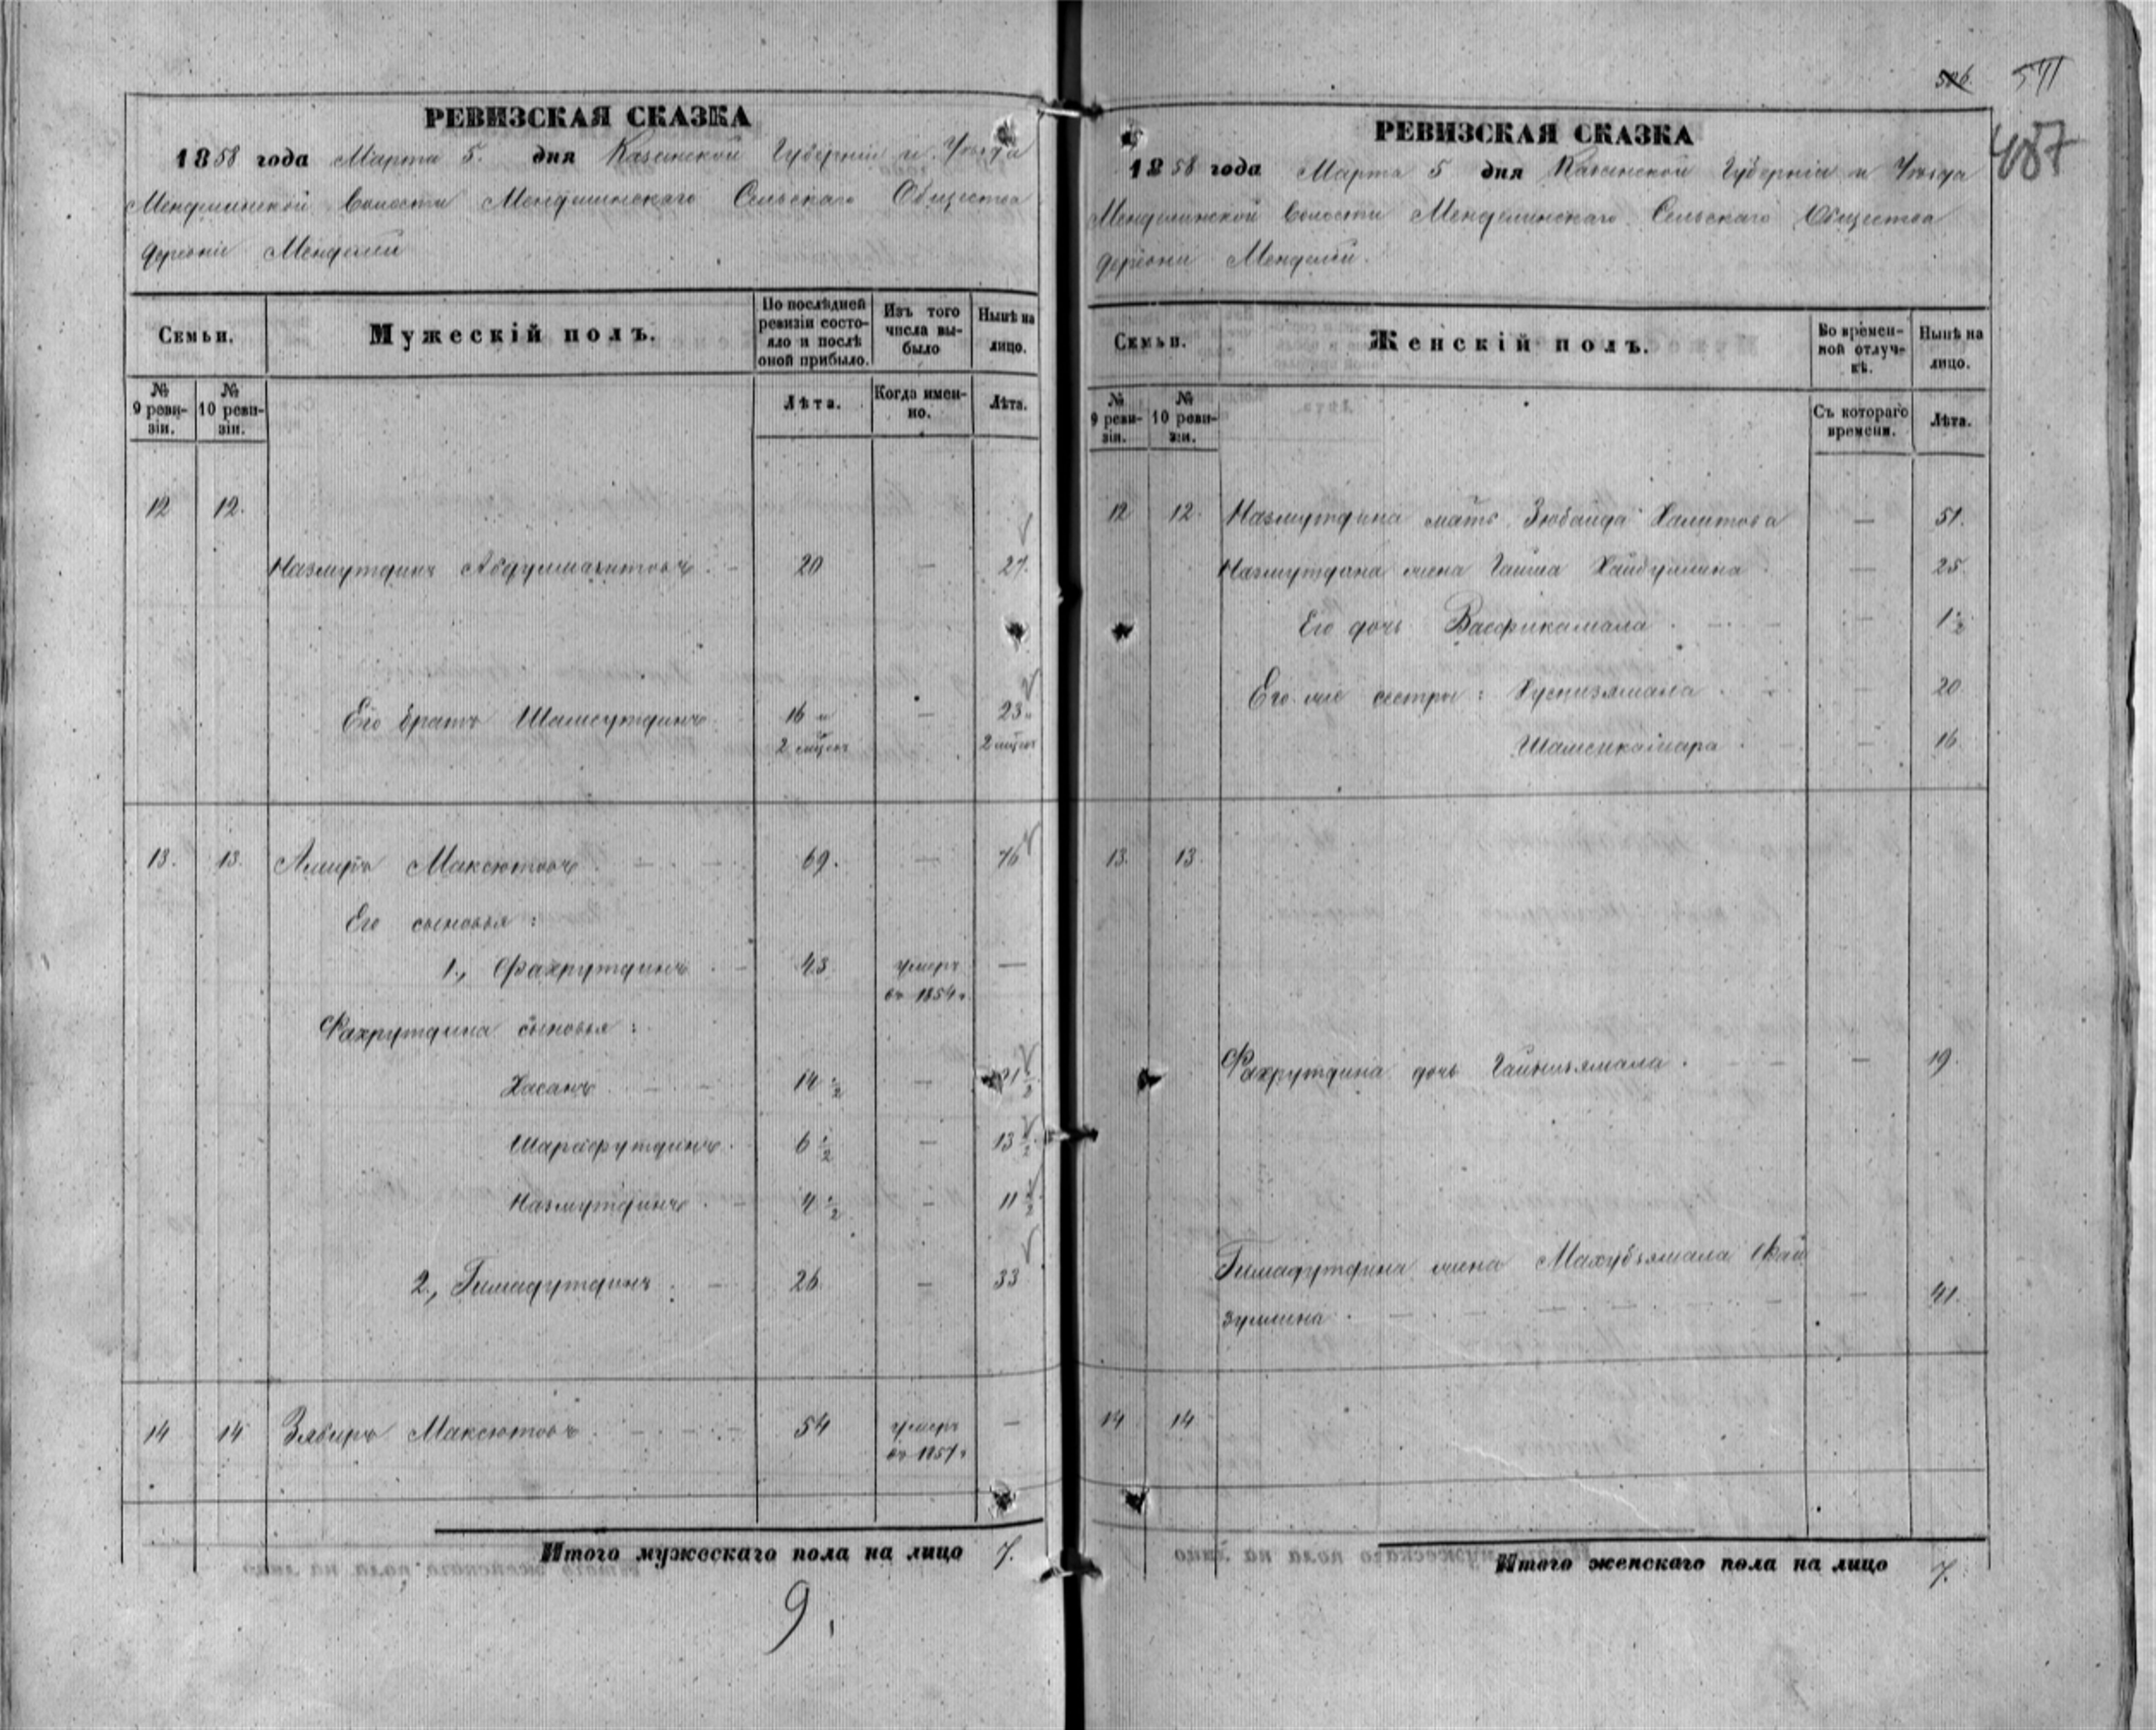 506. 541
487
РЕВИЗСКАЯ СКАЗКА
1858 года Марта 5. дня Казанской Губерніи и Уѣзда
Менделинской Волости Менделинскаго Сельскаго Общества
деревни Мендели
Семьи. Мужескій полъ. По послѣдней ревизіи состояло и послѣ оной прибыло. Изъ того числа выбыло Нынѣ на лицо.
№ 9 ревизіи. № 10 ревизіи. Лѣта. Когда именно. Лѣта.
12 12.
Назмутдинъ Абдулмазитовъ. 20 — 27.
Его братъ Шамсутдинъ 16 и — 23 и
2 мѣсяц 2 мѣсяц
13. 13. Амиръ Максютовъ 69. — 76
Его сыновья:
1., Фахрутдинъ 43 умеръ —
въ 1854 г.
Фахрутдина сыновья:
Хасанъ 14 1/2 — 21 1/2
Шарафутдинъ 6 1/2 — 13 1/2
Назмутдинъ 4 1/2 — 11 1/2
2., Гимадутдинъ 26. — 33
14 14 Зябиръ Максютовъ 54 умеръ —
въ 1857 г.
Итого мужескаго пола на лицо 7.
9.
РЕВИЗСКАЯ СКАЗКА
1858 года Марта 5 дня Казанской Губерніи и Уѣзда
Менделинской Волости Менделинскаго Сельскаго Общества
деревни Мендели.
Семьи. Женскій полъ. Во временной отлучкѣ. Нынѣ на лицо.
№ 9 ревизіи. № 10 ревизіи. Съ котораго времени. Лѣта.
12 12. Назмутдина мать Зюбайда Халитова — 51.
Назмутдина жена Гайша Хайбуллина — 25.
Его дочь Васфикамала — 1 1/2
Его же сестры: Хуснизямала — 20
Шамсикамара — 16
13. 13.
Фахрутдина дочь Гайнизямала — 19.
Гимадутдина жена Махубзямала Фай
зуллина — 41.
14 14
Итого женскаго пола на лицо 7.